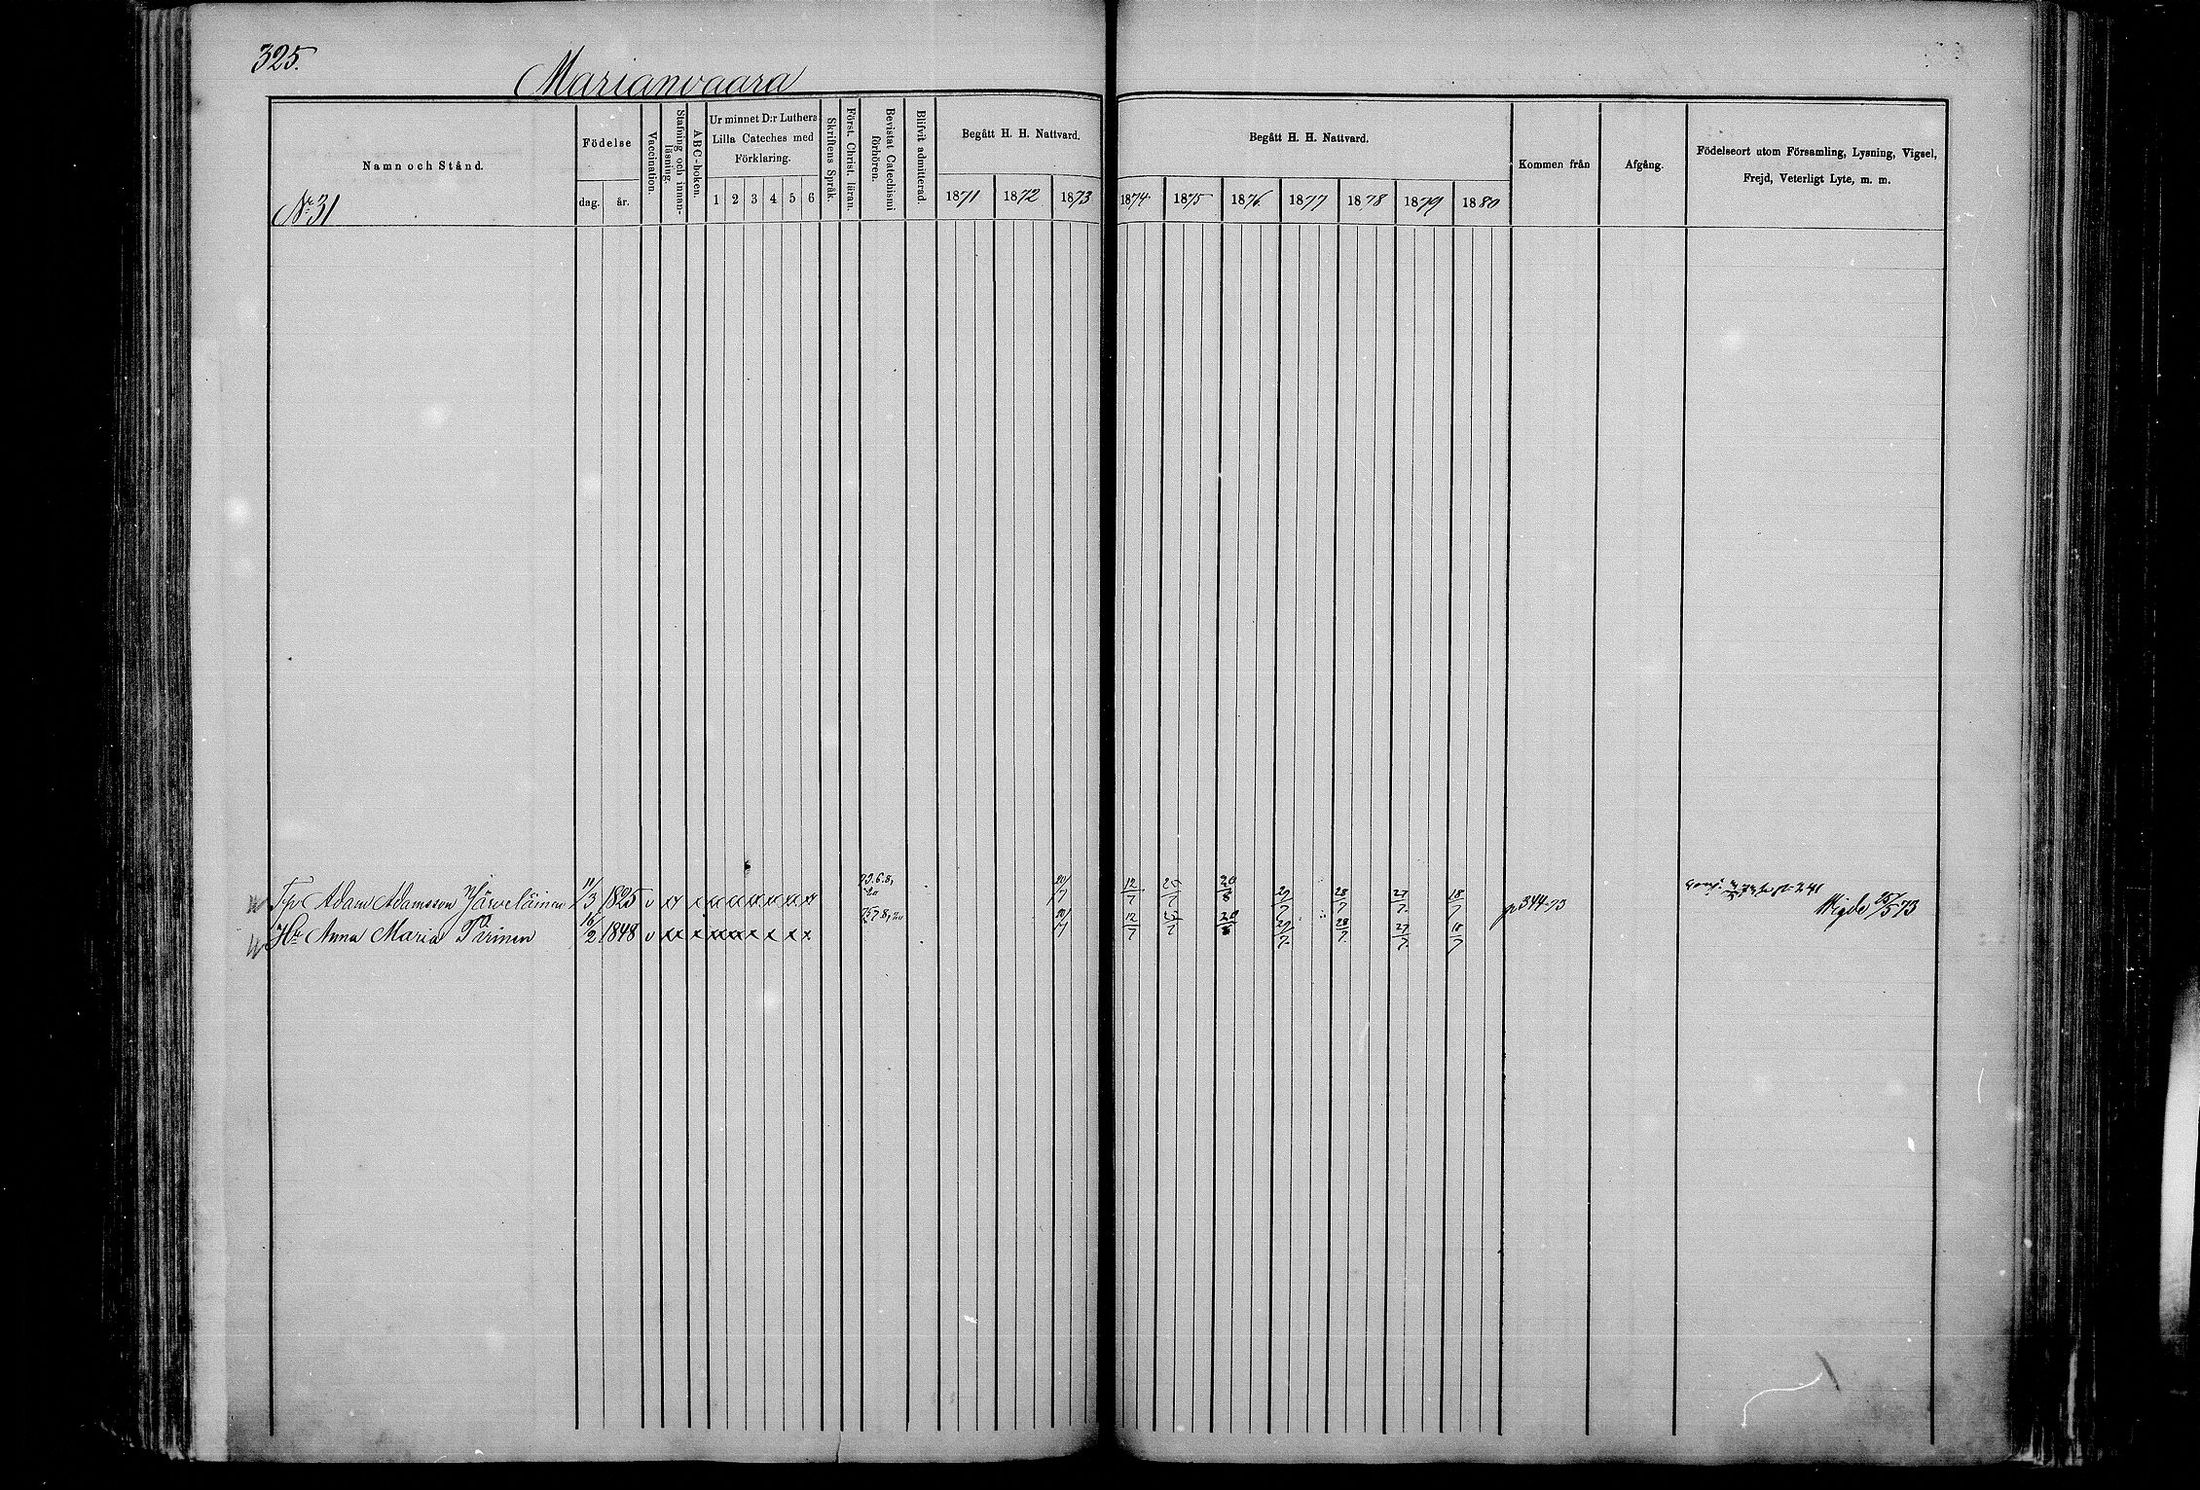 325.
Marianvaara
Namn och Stånd.
Födelse
dag. år.
Vaccination.
Stafning och innanläsning.
ABC-boken.
Ur minnet D:r Luthers Lilla Cateches med Förklaring.
1 2 3 4 5 6
Skriftens Språk.
Först. Christ. läran.
Bevistat Catechismi förhören.
Blifvit admitterad.
Begått H. H. Nattvard.
1871 1872 1873
Begått H. H. Nattvard.
1874 1875 1876 1877 1878 1879 1880
Kommen från
Afgång.
Födelseort utom Församling, Lysning, Vigsel, Frejd, Veterligt Lyte, m. m.
No 31
Adam Adamsson Järveläinen 11/3 1825 v xx x x x x x x x 20/7 12/7 25/7 20/8 29/7 28/7 27/7 18/7 p 344-73 Wigde 25/5 73
Hu Anna Maria Piirinen 16/2 1848 v xx x x x x x x x 20/7 12/7 25/7 20/8 29/7 28/7 27/7 18/7